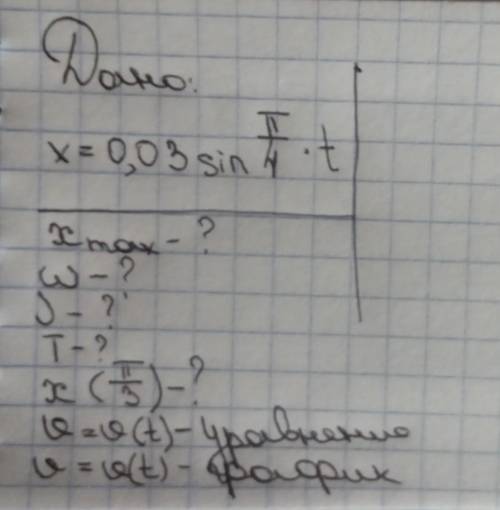 Дано:
x = 0,03 sin π/4 · t
x max - ?
ω - ?
ν - ?
T - ?
x (π/3) - ?
v = v(t) - уравнение
v = v(t) - график